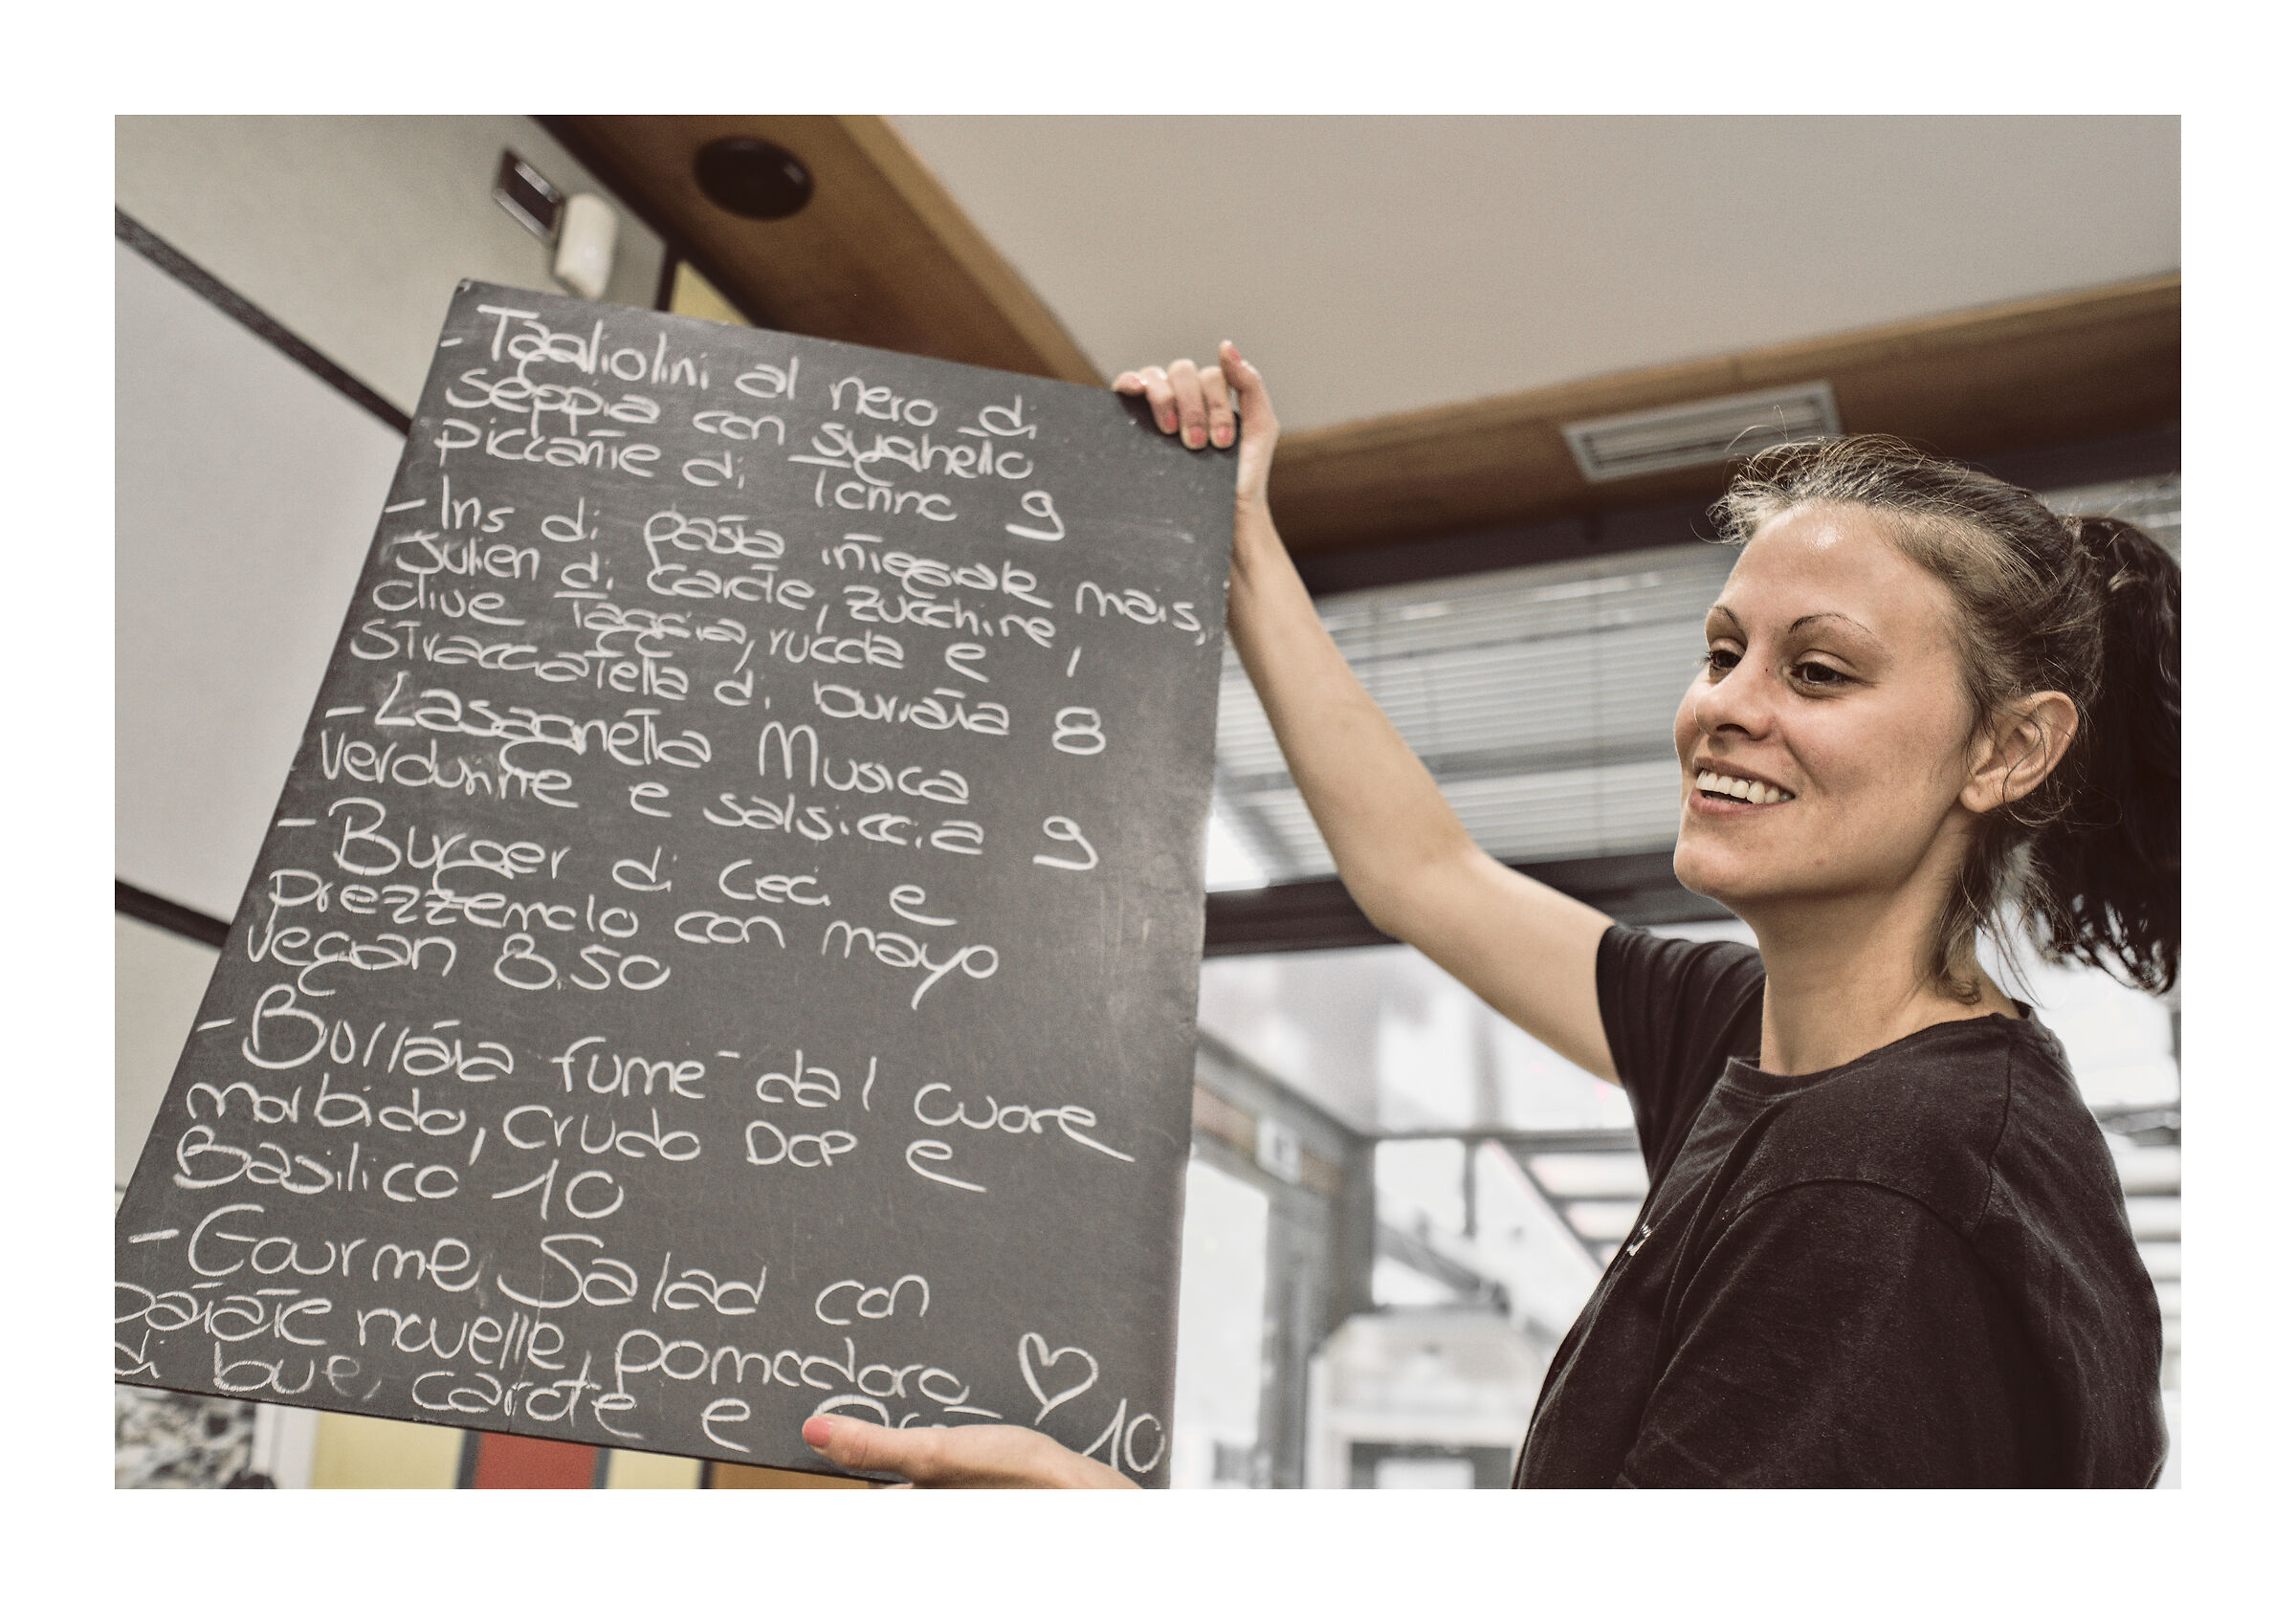 - Tagliolini al nero di
seppia con sughetto
piccante di Tonno 9
- Ins di pasta integrale mais,
Julien di carote, zucchine,
olive Taggia, rucola e
stracciatella di burrata 8
- Lasagnetta Musica
verdurine e salsiccia 9
- Burger di Ceci e
prezzemolo con mayo
vegan 8.50
- Burrata fumé dal cuore
morbido, Crudo DOP e
Basilico 10
- Gourmè Salad con
patate novelle, pomodoro
di bue, carote e 10